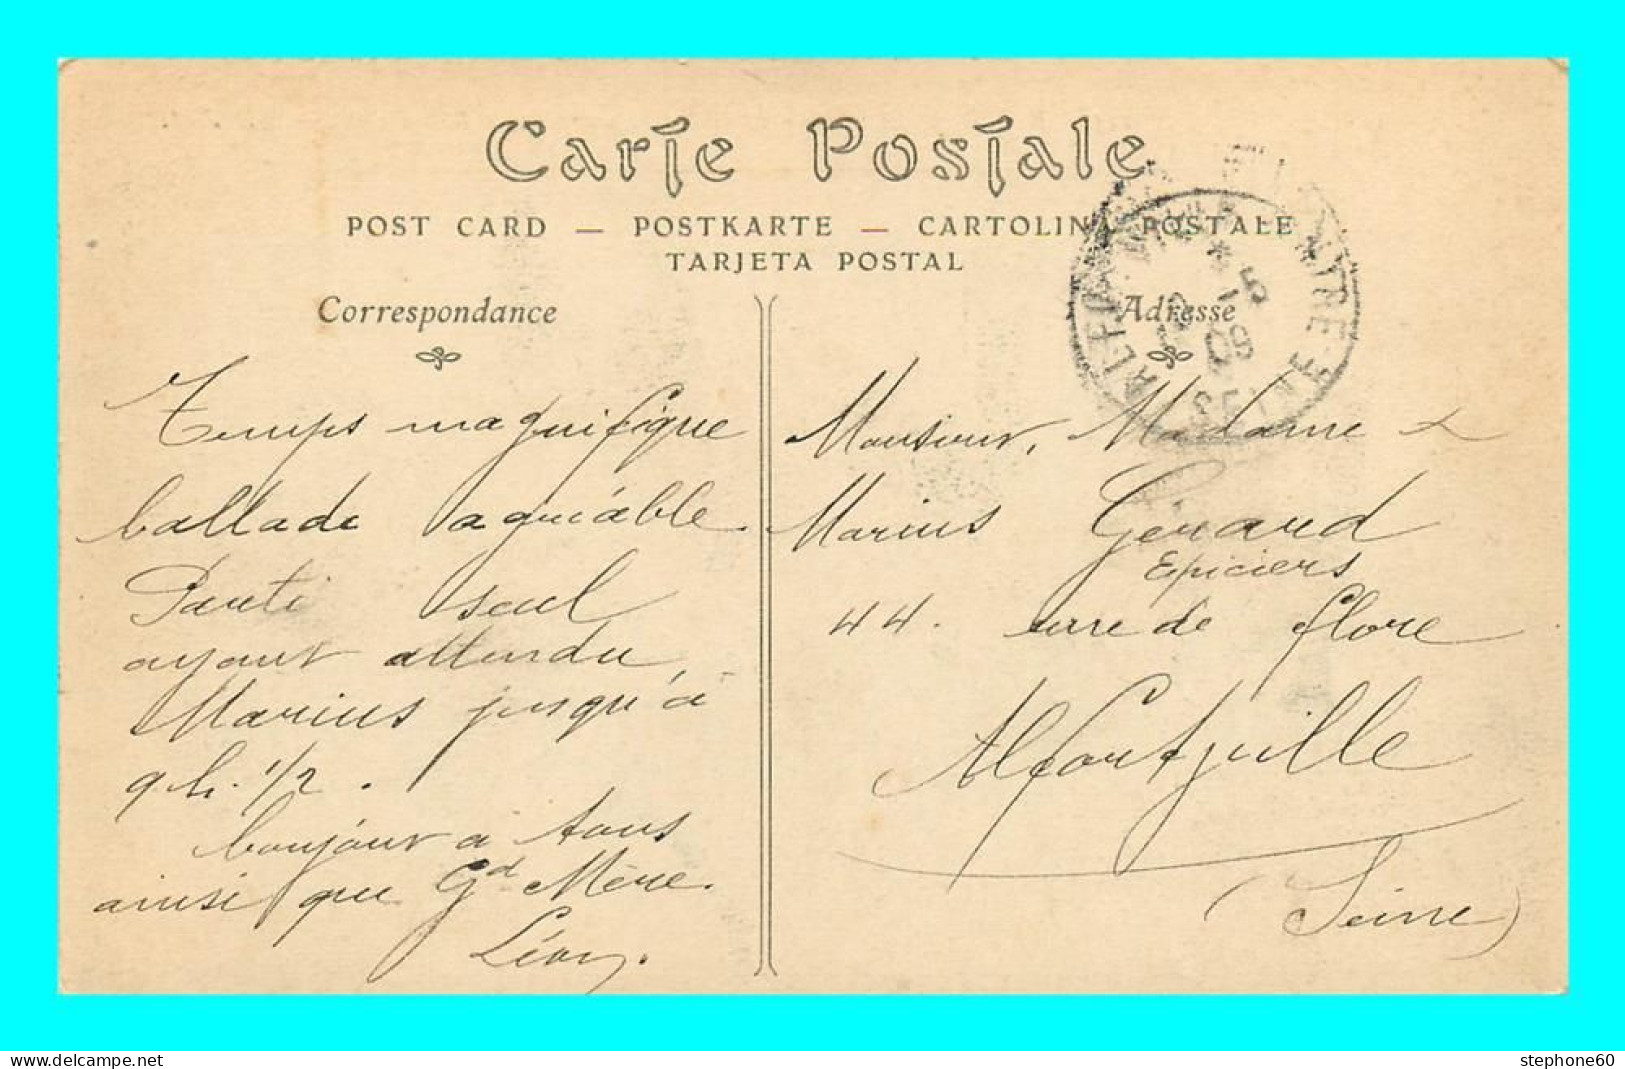 Carte Postale
POST CARD — POSTKARTE — CARTOLINA POSTALE
TARJETA POSTAL
Correspondance
Temps magnifique
ballade agréable.
Parti seul
ayant attendu
Marius jusqu'à
9 h. 1/2.
bonjour a tous
ainsi que Gd Mère.
Léon.
Adresse
Monsieur, Madame
Marius Gérard
Epiciers
44. de flore
Alfortville
(Seine)
SEINE
stephone60